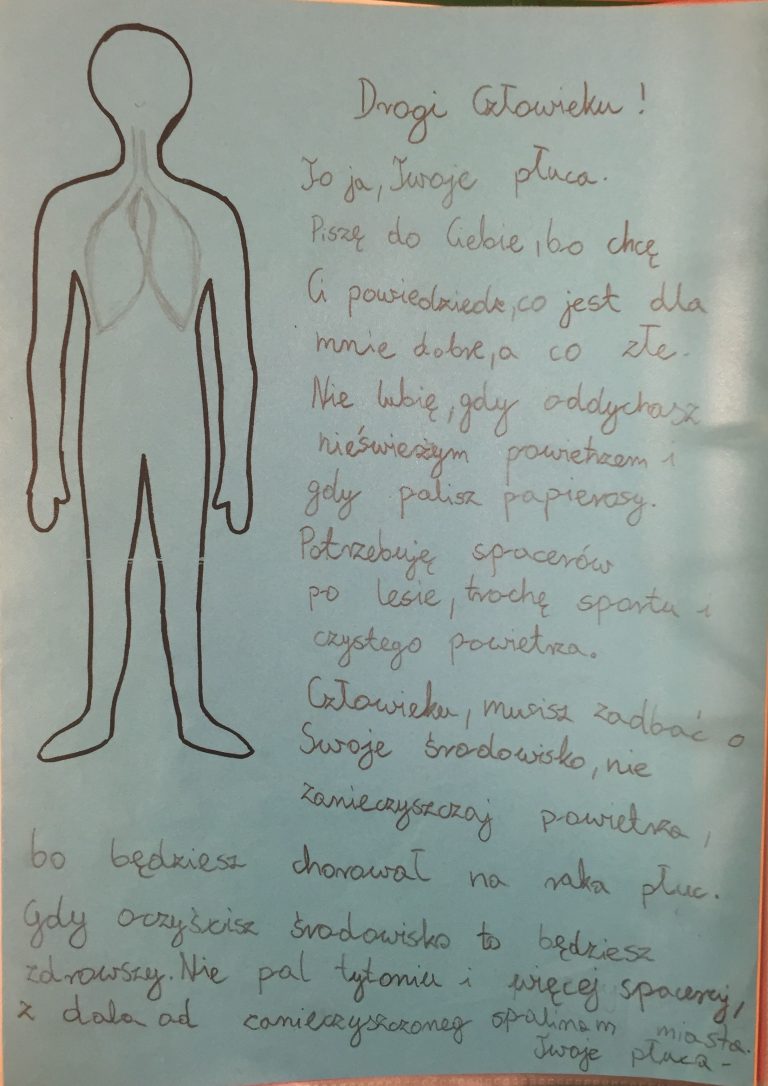 Drogi Człowieku!
To ja, Twoje płuca.
Piszę do Ciebie, bo chcę
Ci powiedzieć, co jest dla
mnie dobre, a co złe.
Nie lubię, gdy oddychasz
nieświeżym powietrzem i
gdy palisz papierosy.
Potrzebuję spacerów
po lesie, trochę sportu i
czystego powietrza.
Człowieku, musisz zadbać o
Swoje środowisko, nie
zanieczyszczaj powietrza,
bo będziesz chorował na raka płuc.
Gdy oczyścisz środowisko to będziesz
zdrowszy. Nie pal tytoniu i więcej spaceruj,
z dala od zanieczyszczoneg spalinam miasta.
Twoje płuca-